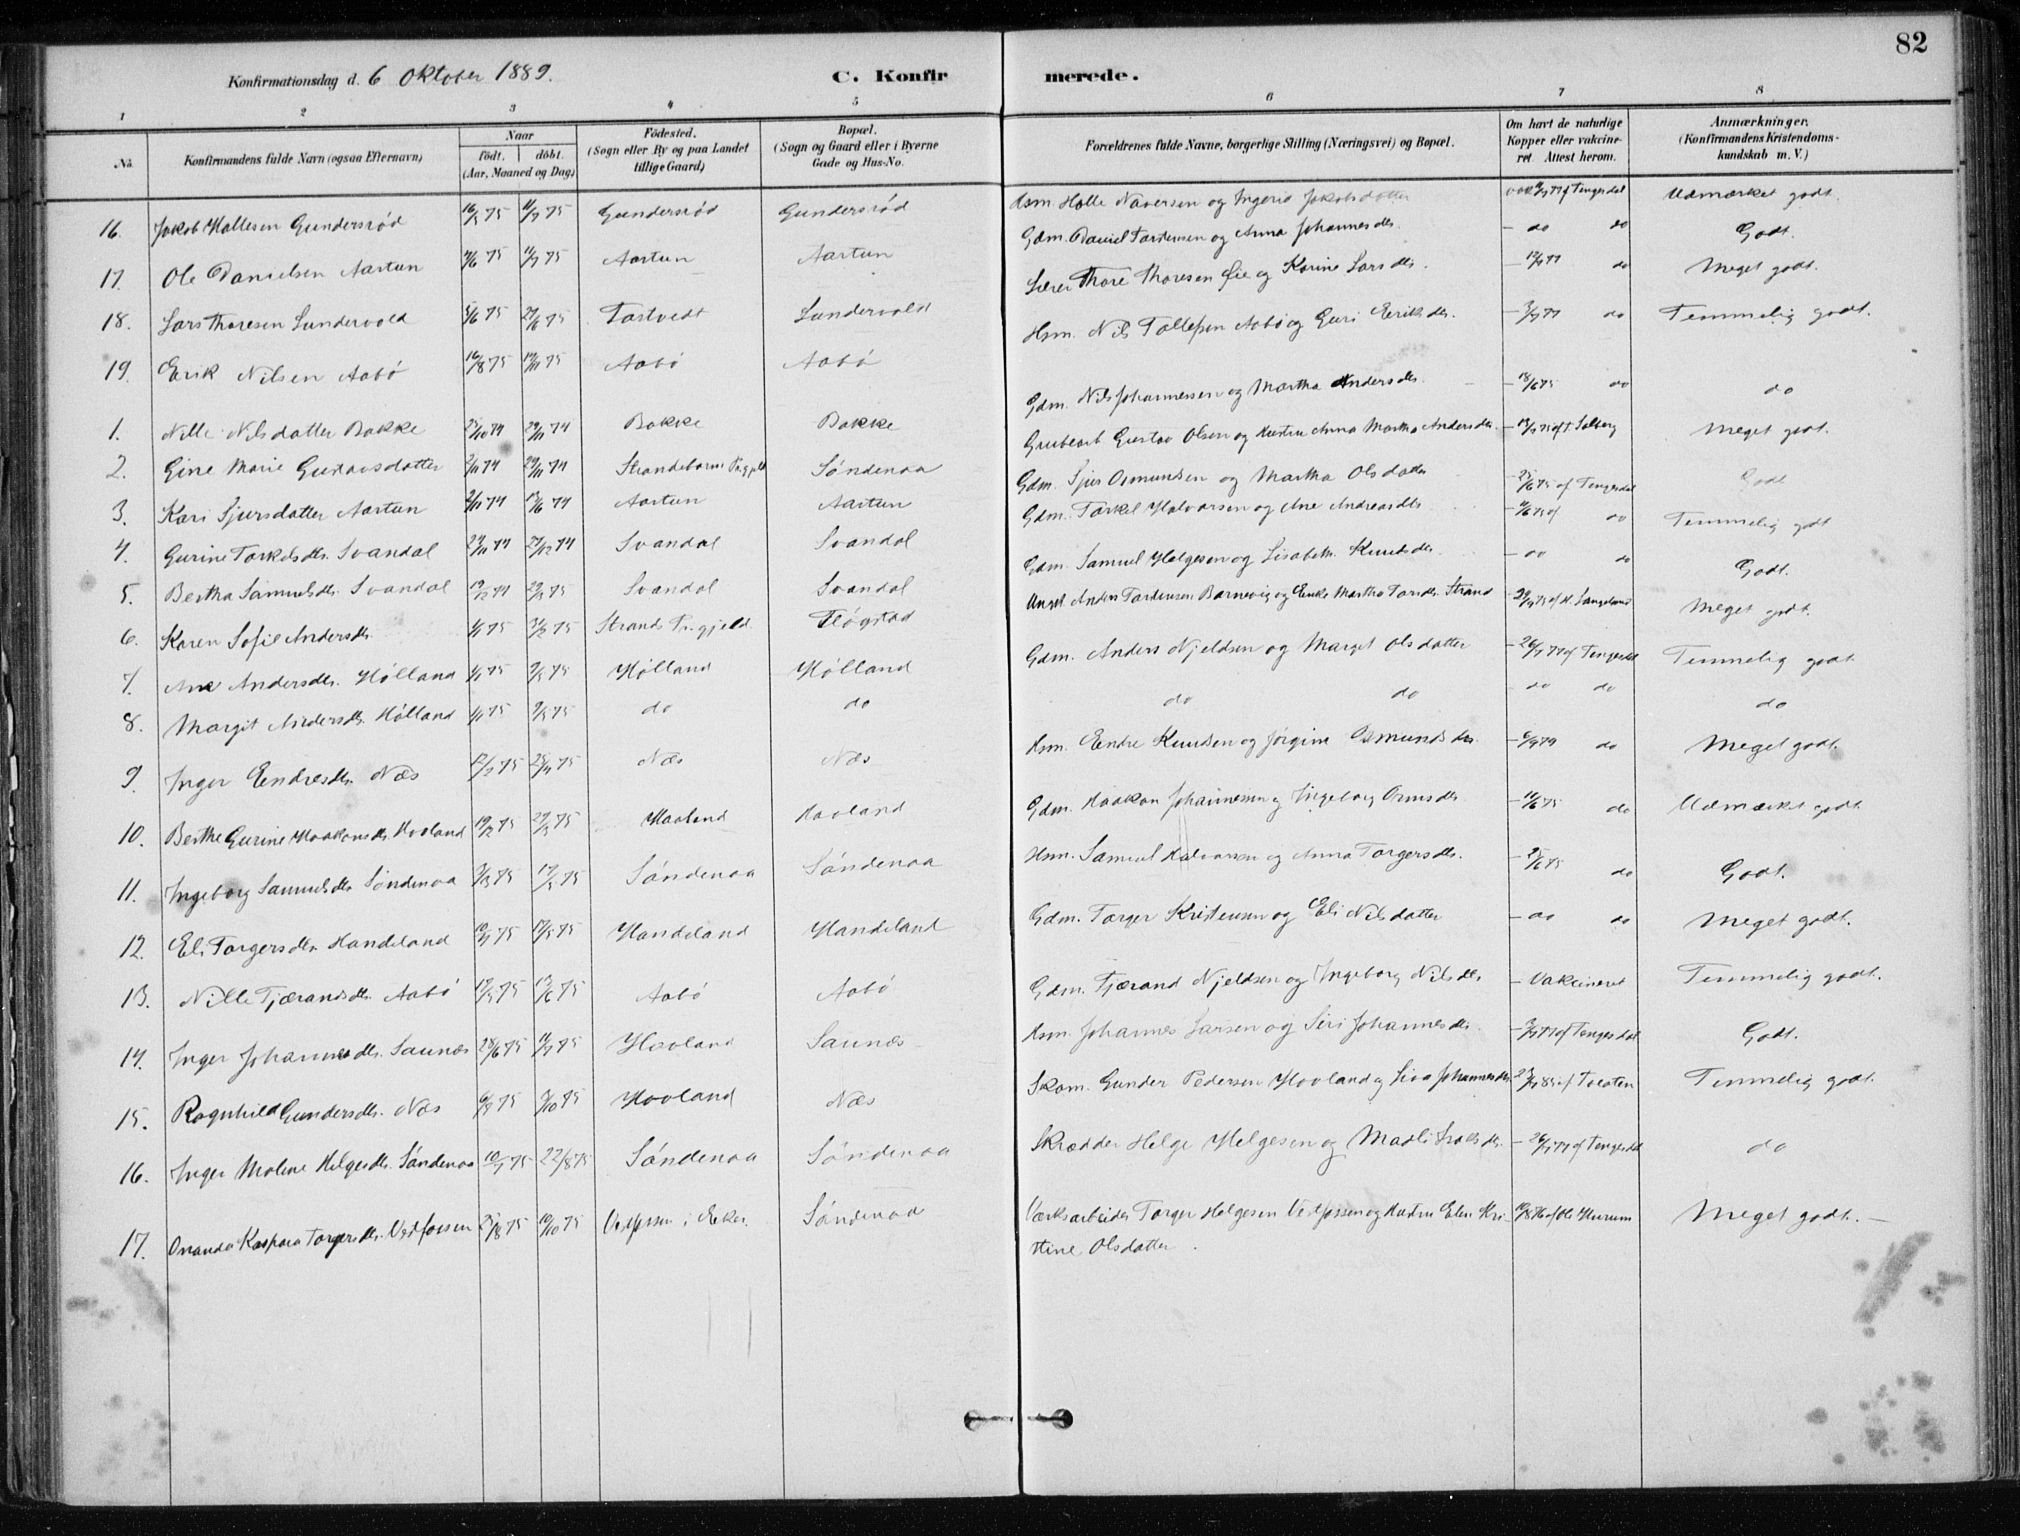 82
Konfirmationsdag d. 6 Oktober 1889.
C. Konfirmerede.
1 2 3 4 5 6 7 8
No. Konfirmandens fulde Navn (ogsaa Efternavn) Naar födt. döbt. (Aar, Maaned og Dag) Födested. (Sogn eller By og paa Landet tillige Gaard) Bopæl. (Sogn og Gaard eller i Byerne Gade og Hus-No. Forældrenes fulde Navne, borgerlige Stilling (Næringsvei) og Bopæl. Om havt de naturlige Kopper eller vakcineret Attest herom. Anmærkninger. (Konfirmandens Kristendomskundskab m. V.)
16. Jakob Hallesen Gundersrød 75 11/7 75 Gundersrød Gundersrød Hsm Halle Naversen og Ingerid Jakobsdatter af Tengesdal Udmærket godt.
17. Ole Danielsen Aartun 75 11/7 75 Aartun Aartun Gdm. Daniel Torstensen og Anna Johannesdtr. – do do Godt.
18. Lars Thoresen Lundervold 5/6 75 27/6 75 Tastvedt Lundervold Lærer Thore Thoresen Øie og Karine Larsdtr. do Meget godt.
19. Erik Nilsen Aabø 16/8 75 75 Aabø Aabø Hsm. Nils Tollefsen Aabø og Guri Eriksdtr. – 3/7 77 do Temmelig godt.
1. Nille Nilsdatter Bakke 74 29/11 74 Bakke Bakke Gdm. Nils Johannessen og Martha Andersdtr. – 18/6 75 do do
2. Gine Marie Gustavsdatter 2/11 74 29/11 74 Strandebarms Prgjeld Søndenaa Grubearb Gustav Olsen og Hustru Anna Martha Andersdtr. Solberg Meget godt.
3. Kari Sjursdatter Aartun 2/11 74 74 Aartun Aartun Gdm. Sjur Osmundsen og Martha Olsdatter – 25/6 75 af Tengesdal Godt
4. Gurine Torkelsdtr. Svandal 74 27/12 74 Svandal Svandal Gdm. Torkel Halvorsen og Ane Andreasdtr. do Temmelig godt
5. Bertha Samuelsdtr. Svandal 19/12 74 75 Svandal Svandal Gdm. Samuel Helgesen og Lisabeth Knudsdtr. – do do Godt.
6. Karen Sofie Andersdtr. 1/1 75 75 Strands Prgjeld. Fløgstad Ungk. Anders Torstensen Barnevig og Enke Martha Strand af H. Langeland Meget godt.
7. Ane Andersdtr. Hølland 1/1 75 75 Hølland Hølland Gdm. Anders Njeldsen og Marget Olsdatter – 26/7 77 af Tengesdal Temmelig godt.
8. Margit Andersdtr. Hølland 1/1 75 75 do do do do – do do do
9. Inger Endresdtr. Næs 12/2 75 75 Næs Næs Hsm. Endre Knudsen og Jørgine Osmundsdtr. do Meget godt.
10. Berthe Gurine Haakonsdtr. Hovland 19/2 75 75 Haaland Havland Gdm. Haakon Johannesen og Ingeborg Ormsdtr. – 11/6 75 do Udmærket godt
11. Ingeborg Samuelsdtr. Søndenaa 75 17/5 75 Søndenaa Søndenaa Hsm. Samuel Halvorsen og Anna Torgersdtr. – 25/6 75 do Godt.
12. Eli Torgersdtr. Handeland 75 17/5 75 Handeland Handeland Gdm. Torger Kristensen og Eli Nilsdatter – do do Meget godt.
13. Nille Tjærandsdtr. Aabø 75 13/6 75 Aabø Aabø Gdm. Tjærand Njeldsen og Ingeborg Nilsdtr – Vakcineret Temmelig godt.
14. Inger Johannesdtr. Saunæs 28/6 75 11/7 75 Hovland Saunæs Hsm. Johannes Larsen og Siri Johannesdtr. – 3/7 77 af Tengesdal Godt.
15. Ragnhild Gundersdtr. Næs 75 3/10 75 Hovland Næs Skom. Gunder Pedersen Hovland og Siva Johannesdtr 85 af Tveten Temmelig godt.
16. Inger Malene Helgesdtr. Søndenaa 10/7 75 22/8 75 Søndenaa Søndenaa Skrædder Helge Helgesen og Madli – 26/7 77 af Tengesdal do
17. Ovanda Kaspara Torgersdtr. Vestfossen 75 10/10 75 Vestfossen i Eker Søndenaa Værksarbeider Torger Helgesen Vestfossen og Hustru Elen Kri- Hurum Meget godt. –
stine Olsdatter.